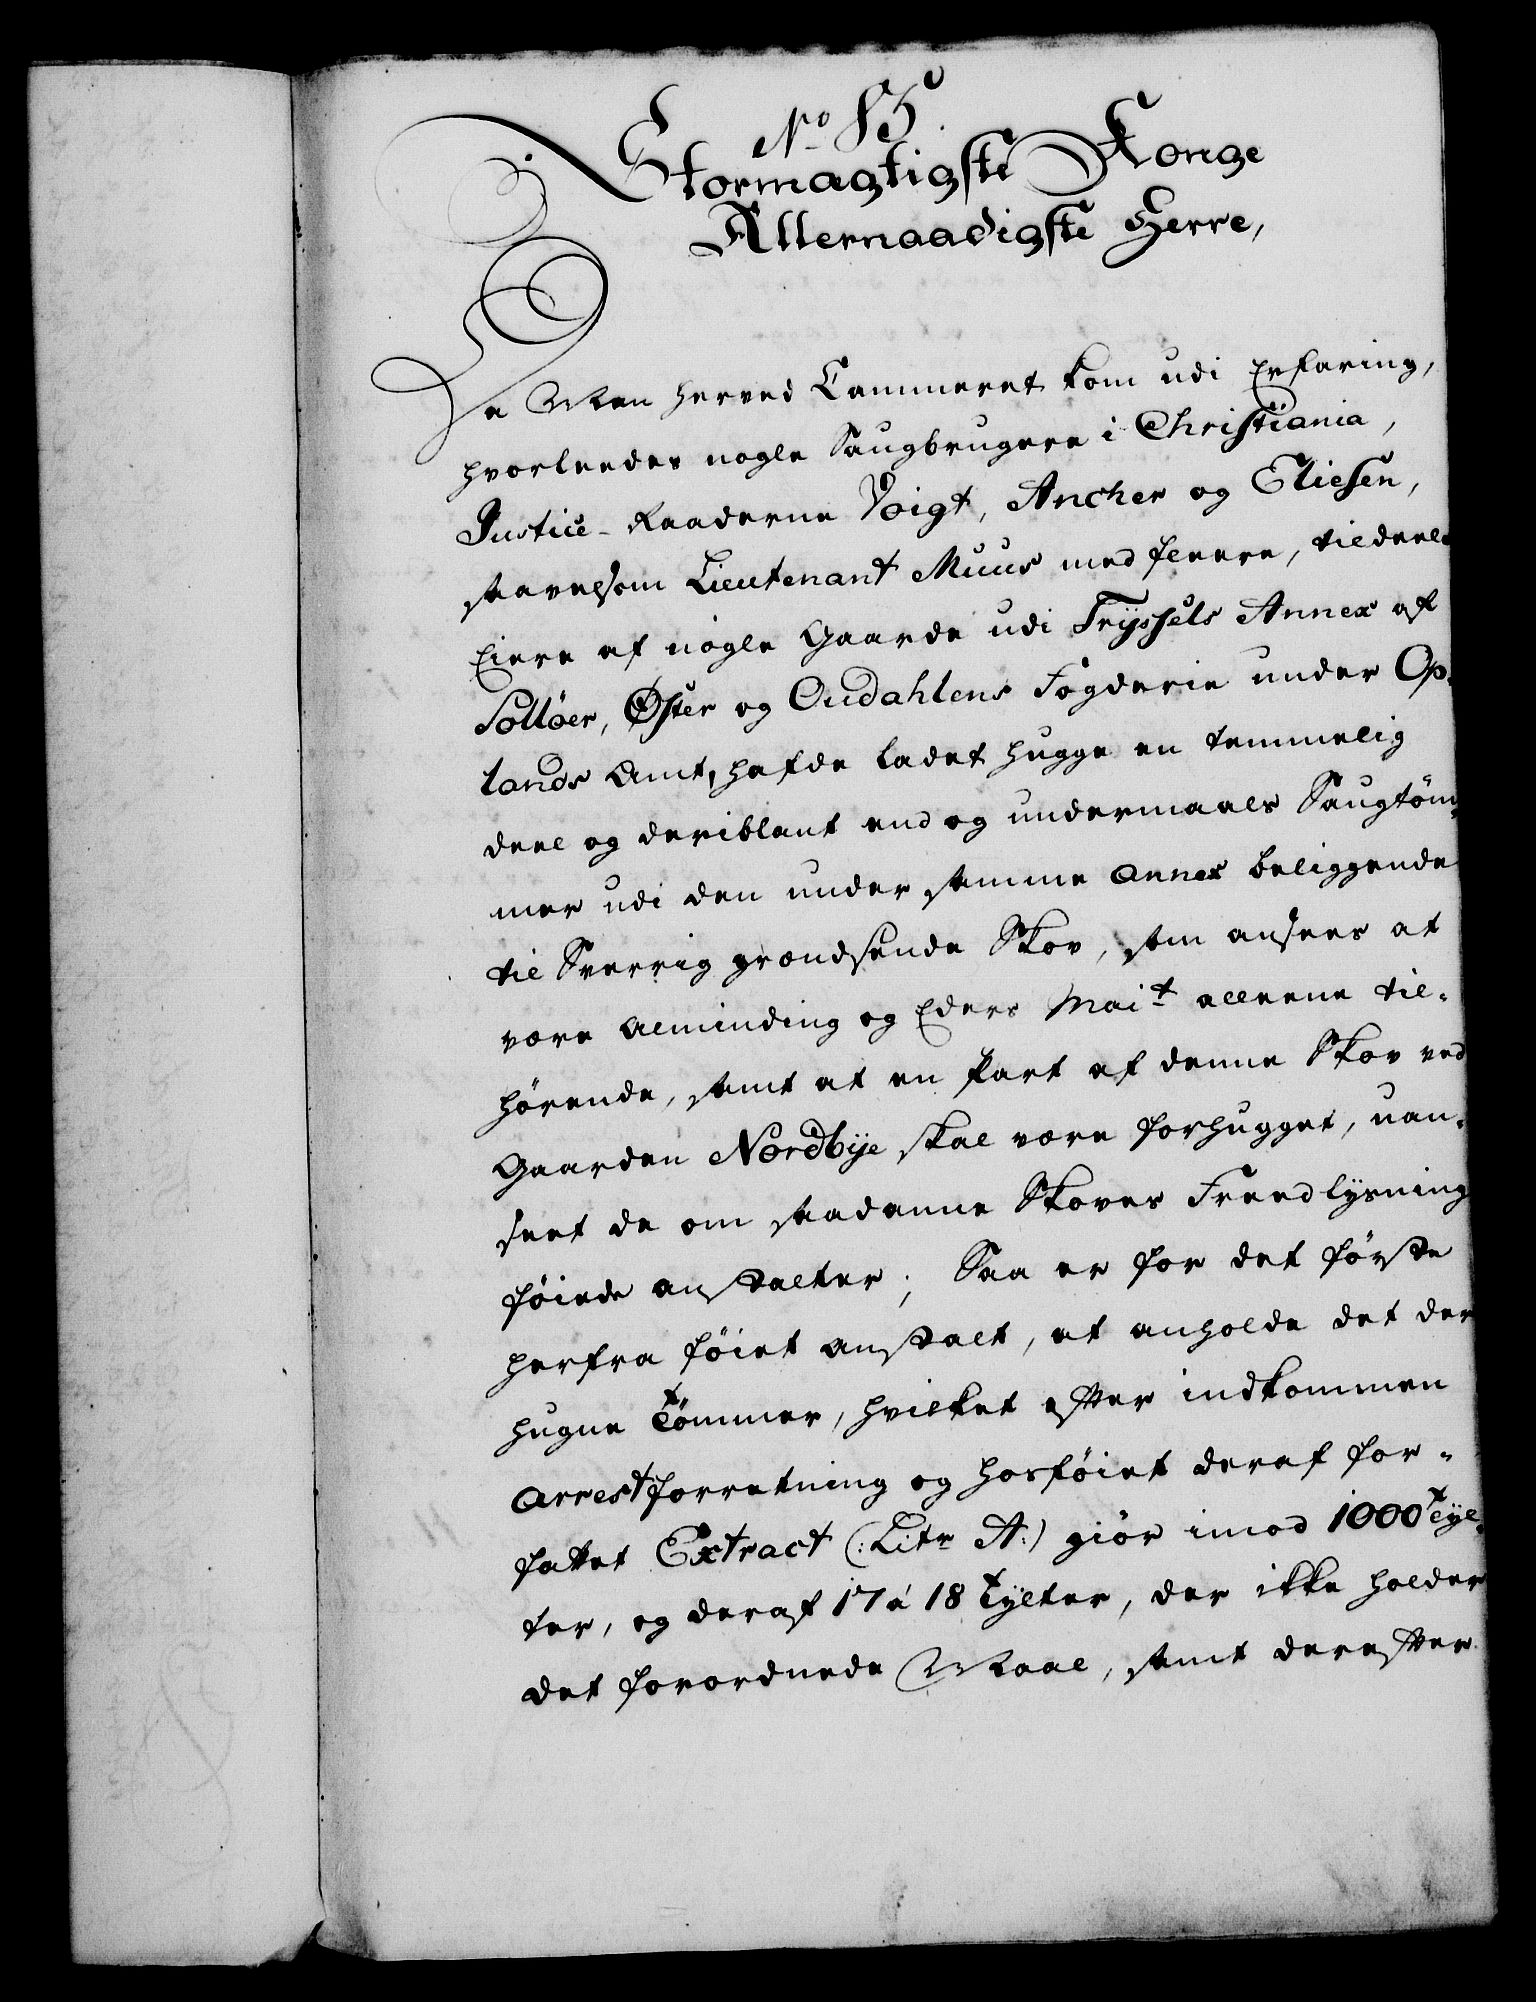 No 85.
Stormagtigste Konge
Allernaadigste Herre,
Da Man herved Cammeret kom udi Erfaring,
hvorleedes nogle Saugbrugere i Christiania,
Justice-Raaderne Voigt, Ancher og Eliesen,
saavelsom Lieutenant Muus med fleere, tildeels
Eiere af nogle Gaarde udi Tryssels Annex af
Solløer, Øster og Oudahlens Fogderie under Op-
lands Amt, hafde ladet hugge en temmelig
deel og deriblant end og undermaals Saugtøm-
mer udi den under samme Annex beliggende
til Sverrig grændsende Skov, som ansees at
være Alminding og Eders Mait alleene til-
hørende, samt at en Part af denne Skov ved
Gaarden Nordbye skal være forhugget, uan-
seet de om saadanne Skoves Freedlysning
føiede Anstalter; Saa er for det første
herfra føiet Anstalt, at anholde det der
hugne Tømmer, hvilket efter indkommen
Arrestforretning og hosføiet deraf for-
fattet Extract (: Litr A:) giør imod 1000 Tyl-
ter, og deraf 17 à 18 Tylter, der ikke holder
det forordnede Maal, samt derefter